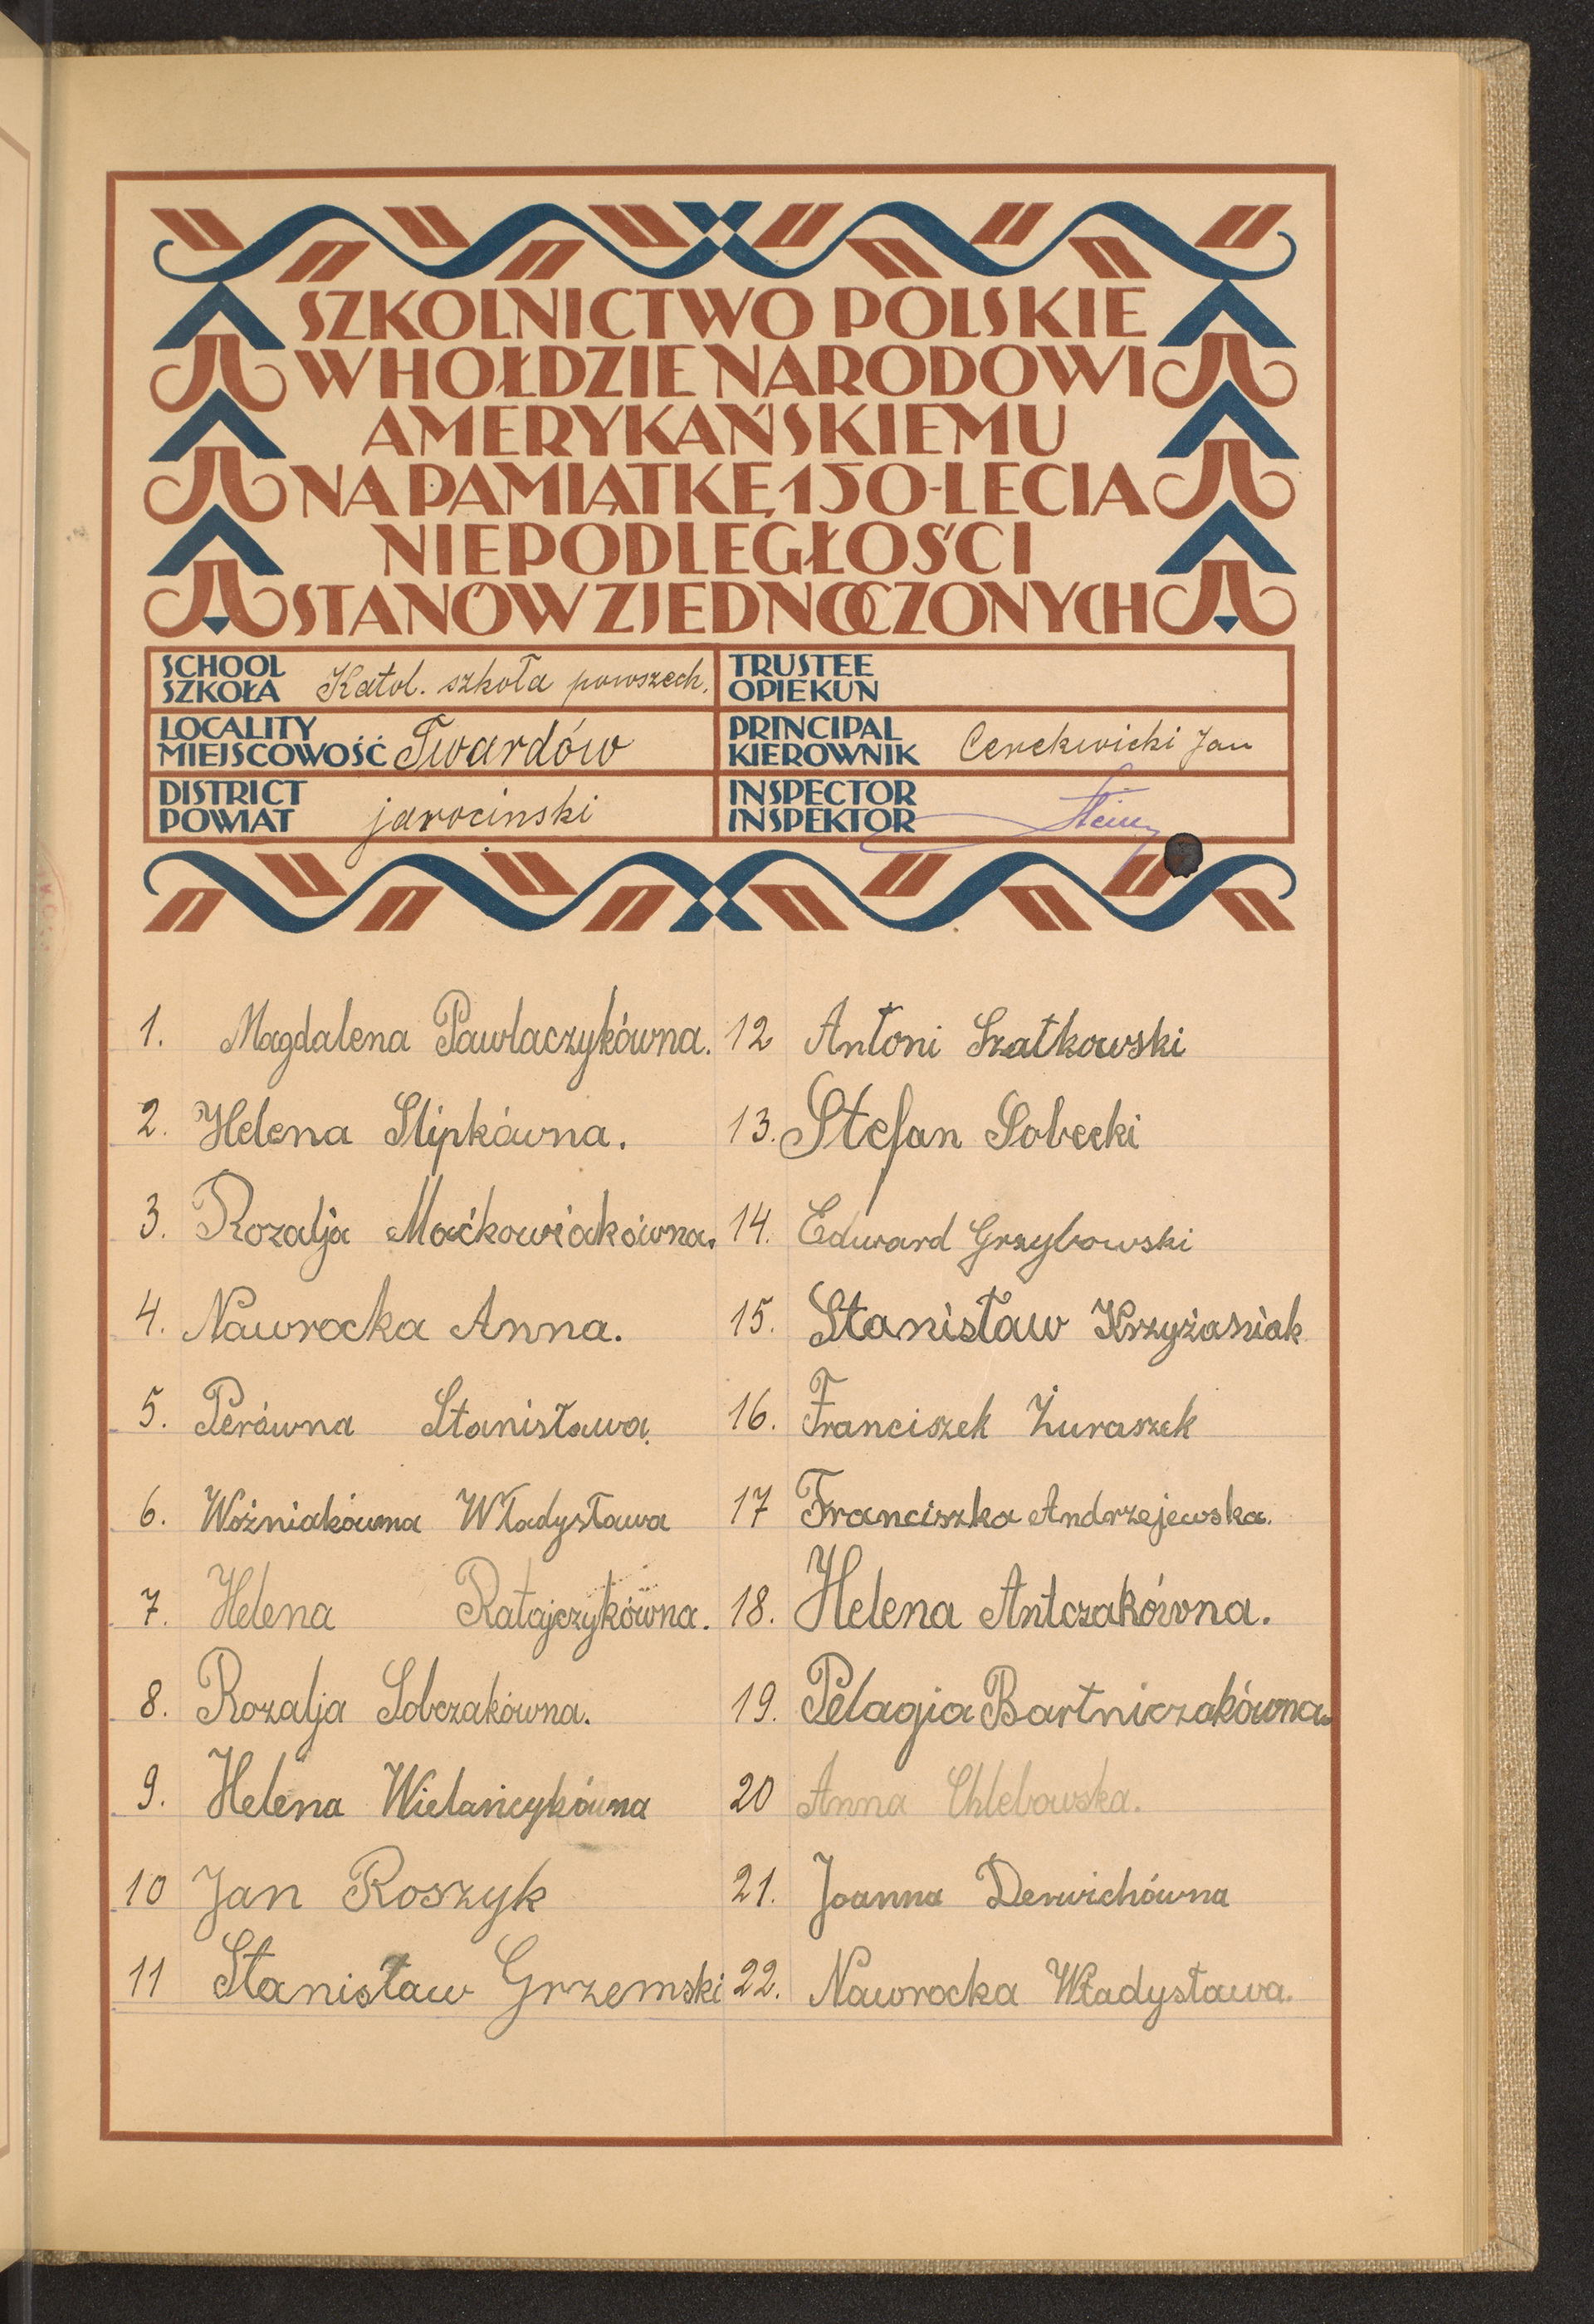 SZKOLNICTWO POLSKIE
W HOŁDZIE NARODOWI
AMERYKAŃSKIEMU
NA PAMIĄTKĘ 150-LECIA
NIEPODLEGŁOŚCI
STANÓW ZJEDNOCZONYCH
SCHOOL
SZKOŁA Katol. szkoła powszech.
TRUSTEE
OPIEKUN
LOCALITY
MIEJSCOWOŚĆ Twardów
PRINCIPAL
KIEROWNIK Cerekwicki Jan
DISTRICT
POWIAT jarocinski
INSPECTOR
INSPEKTOR
1. Magdalena Pawlaczykówna.
2. Helena Slipkówna.
3. Rozalja Maćkowiakówna.
4. Nawrocka Anna.
5. Perówna Stanisława.
6. Woźniakówna Władysława
7. Helena Ratajczykówna.
8. Rozalja Sobczakówna.
9. Helena Wielańcykówna
10 Jan Roszyk
11 Stanisław Grzemski
12 Antoni Szatkowski
13. Stefan Sobecki
14. Edward Grzybowski
15. Stanisław Krzyżaniak
16. Franciszek Żuraszek
17 Franciszka Andrzejewska.
18. Helena Antczakówna.
19. Pelagia Bartniczakówna.
20 Anna Chlebowska.
21. Joanna Derwichówna
22. Nawrocka Władysława.